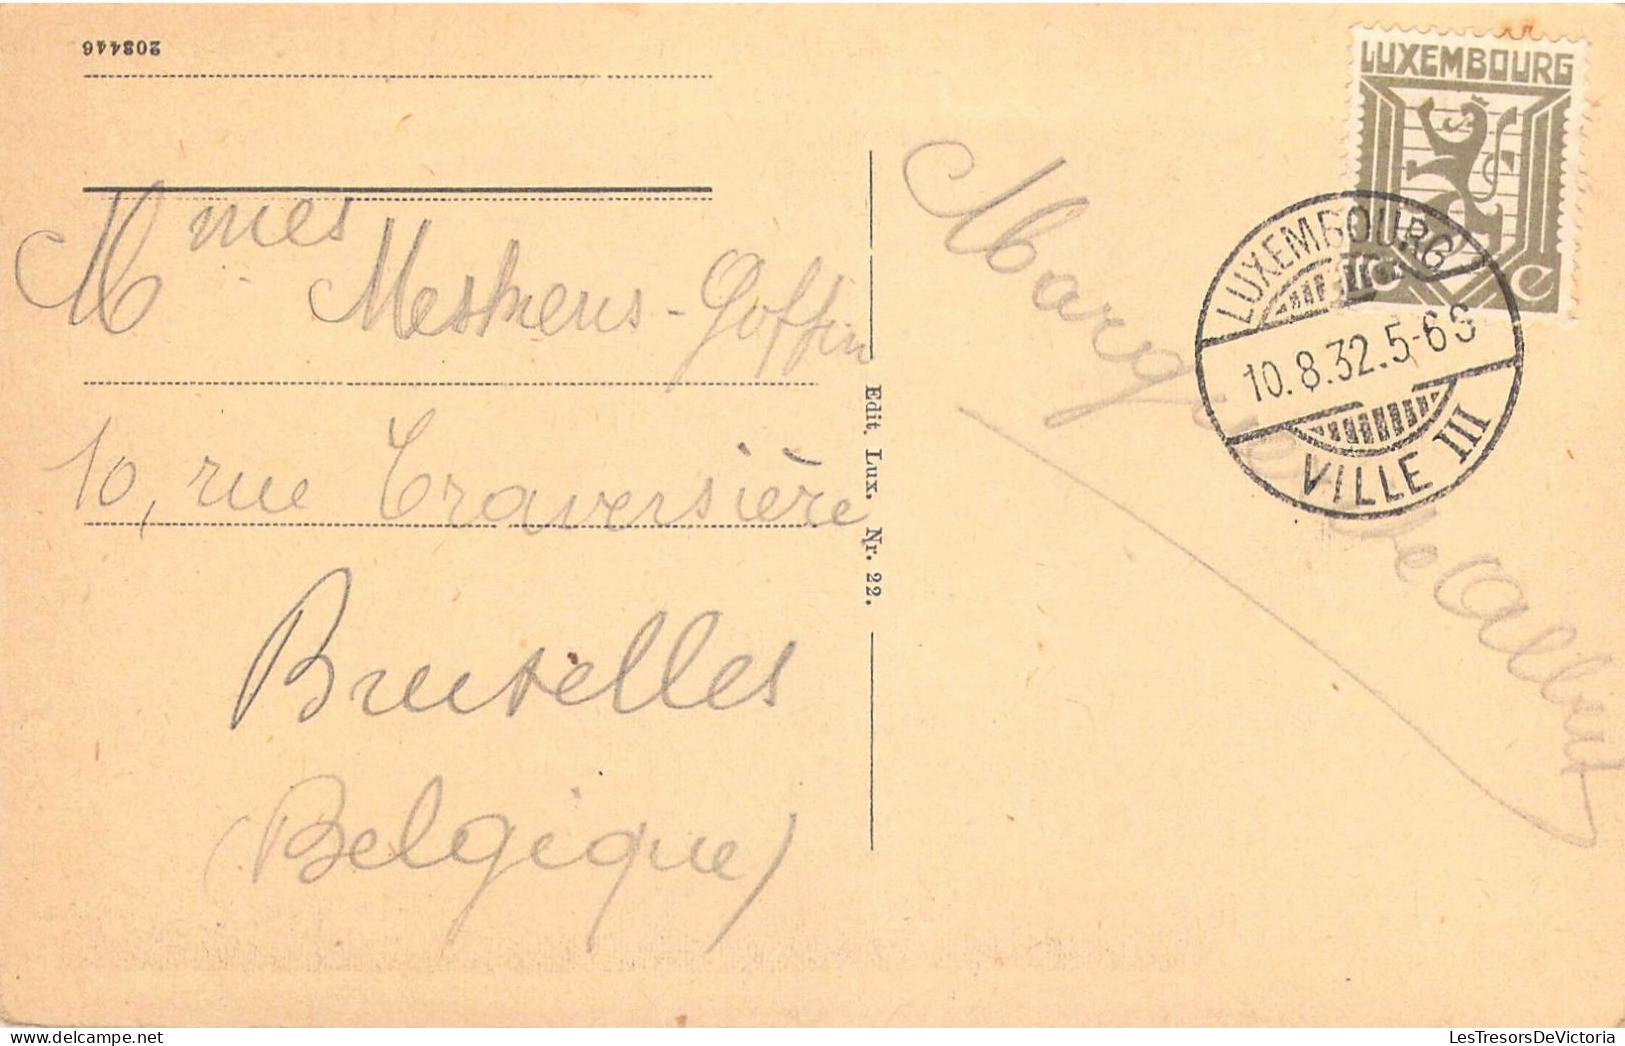 208446
Mmes Meskens-Goffin
10, rue Traversière
Bruxelles
(Belgique)
Edit. Lux. Nr. 22.
Marguerite Albert
LUXEMBOURG
c
LUXEMBOURG
10.8.32.5-6S
VILLE III
LesTresorsDeVictoria